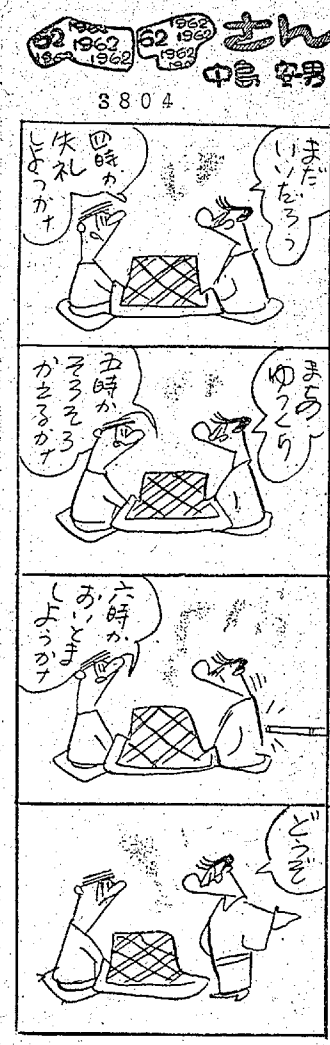 62 1962
1962
1962 1962
62 1962
1962
さん
中島 安男
3804.
まだ
いいだろう
四時か
失礼
しようかナ
まあ
ゆっくり
五時か
そろそろ
かえるかナ
六時か
おいとま
しようかナ
どうぞ